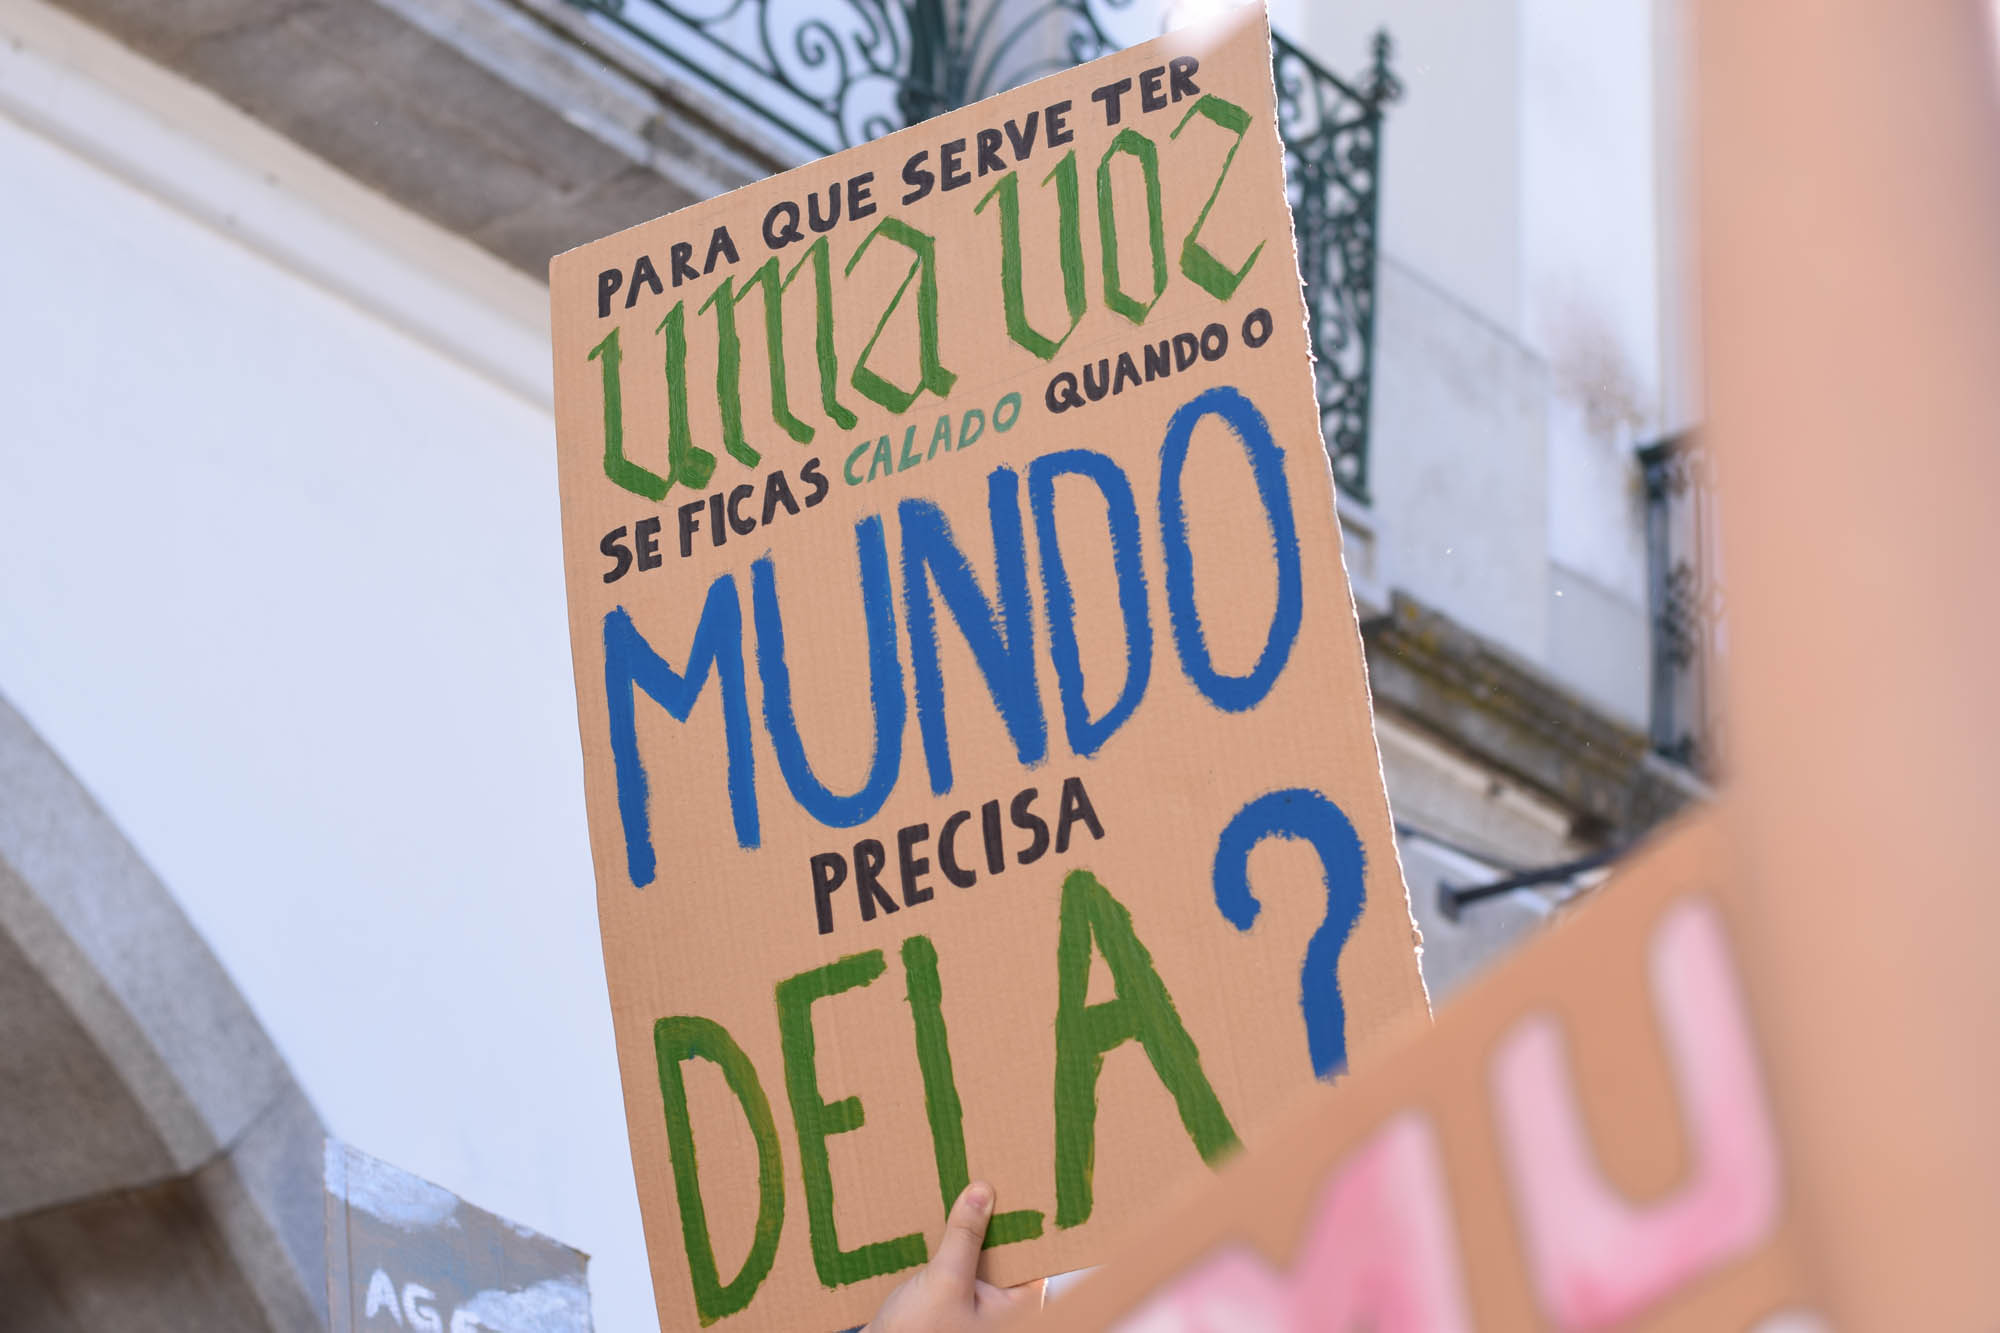 PARA QUE SERVE TER
uma voz
SE FICAS CALADO QUANDO O
MUNDO
PRECISA
DELA?